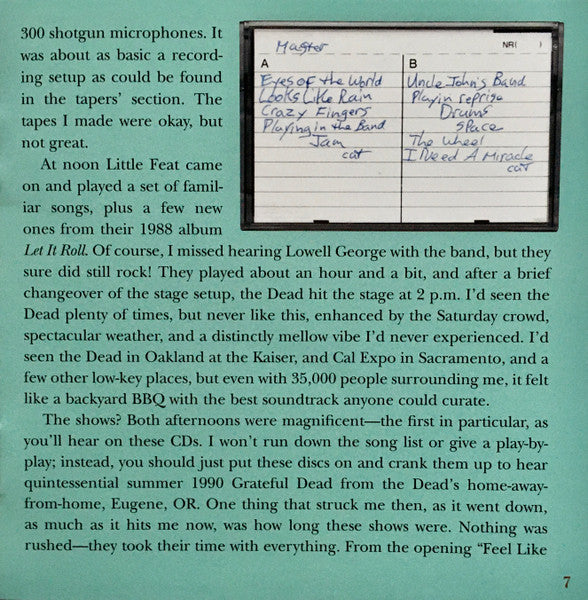 300 shotgun microphones. It
was about as basic a record-
ing setup as could be found
in the tapers' section. The
tapes I made were okay, but
not great.
At noon Little Feat came
on and played a set of famil-
iar songs, plus a few new
ones from their 1988 album
Master
NR( )
A
Eyes of the World
Looks Like Rain
Crazy Fingers
Playing in the Band
Jam
cut
B
Uncle John's Band
Playin reprise
Drums
Space
The Wheel
I Need A Miracle
cut
Let It Roll. Of course, I missed hearing Lowell George with the band, but they
sure did still rock! They played about an hour and a bit, and after a brief
changeover of the stage setup, the Dead hit the stage at 2 p.m. I'd seen the
Dead plenty of times, but never like this, enhanced by the Saturday crowd,
spectacular weather, and a distinctly mellow vibe I'd never experienced. I'd
seen the Dead in Oakland at the Kaiser, and Cal Expo in Sacramento, and a
few other low-key places, but even with 35,000 people surrounding me, it felt
like a backyard BBQ with the best soundtrack anyone could curate.
The shows? Both afternoons were magnificent—the first in particular, as
you'll hear on these CDs. I won't run down the song list or give a play-by-
play; instead, you should just put these discs on and crank them up to hear
quintessential summer 1990 Grateful Dead from the Dead's home-away-
from-home, Eugene, OR. One thing that struck me then, as it went down,
as much as it hits me now, was how long these shows were. Nothing was
rushed—they took their time with everything. From the opening "Feel Like
7